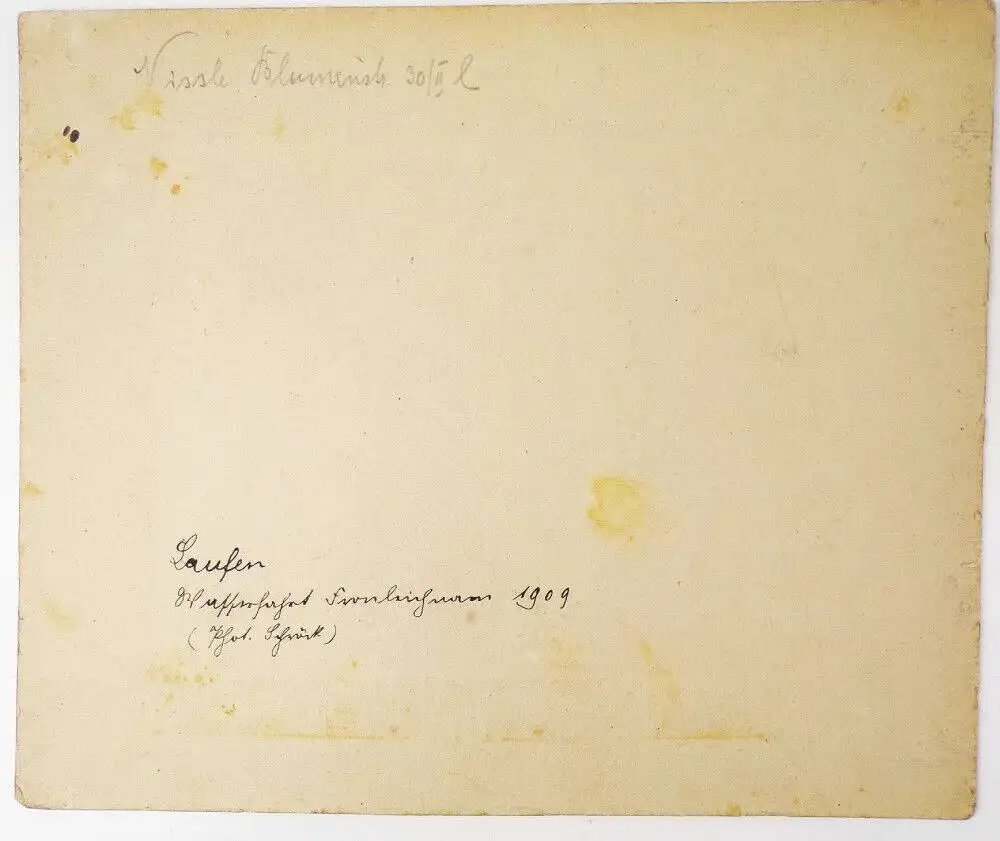 Nissle Blumenstr 30/II l
Laufen
Wasserfahrt Fronleichnam 1909
(Phot. Schröck)